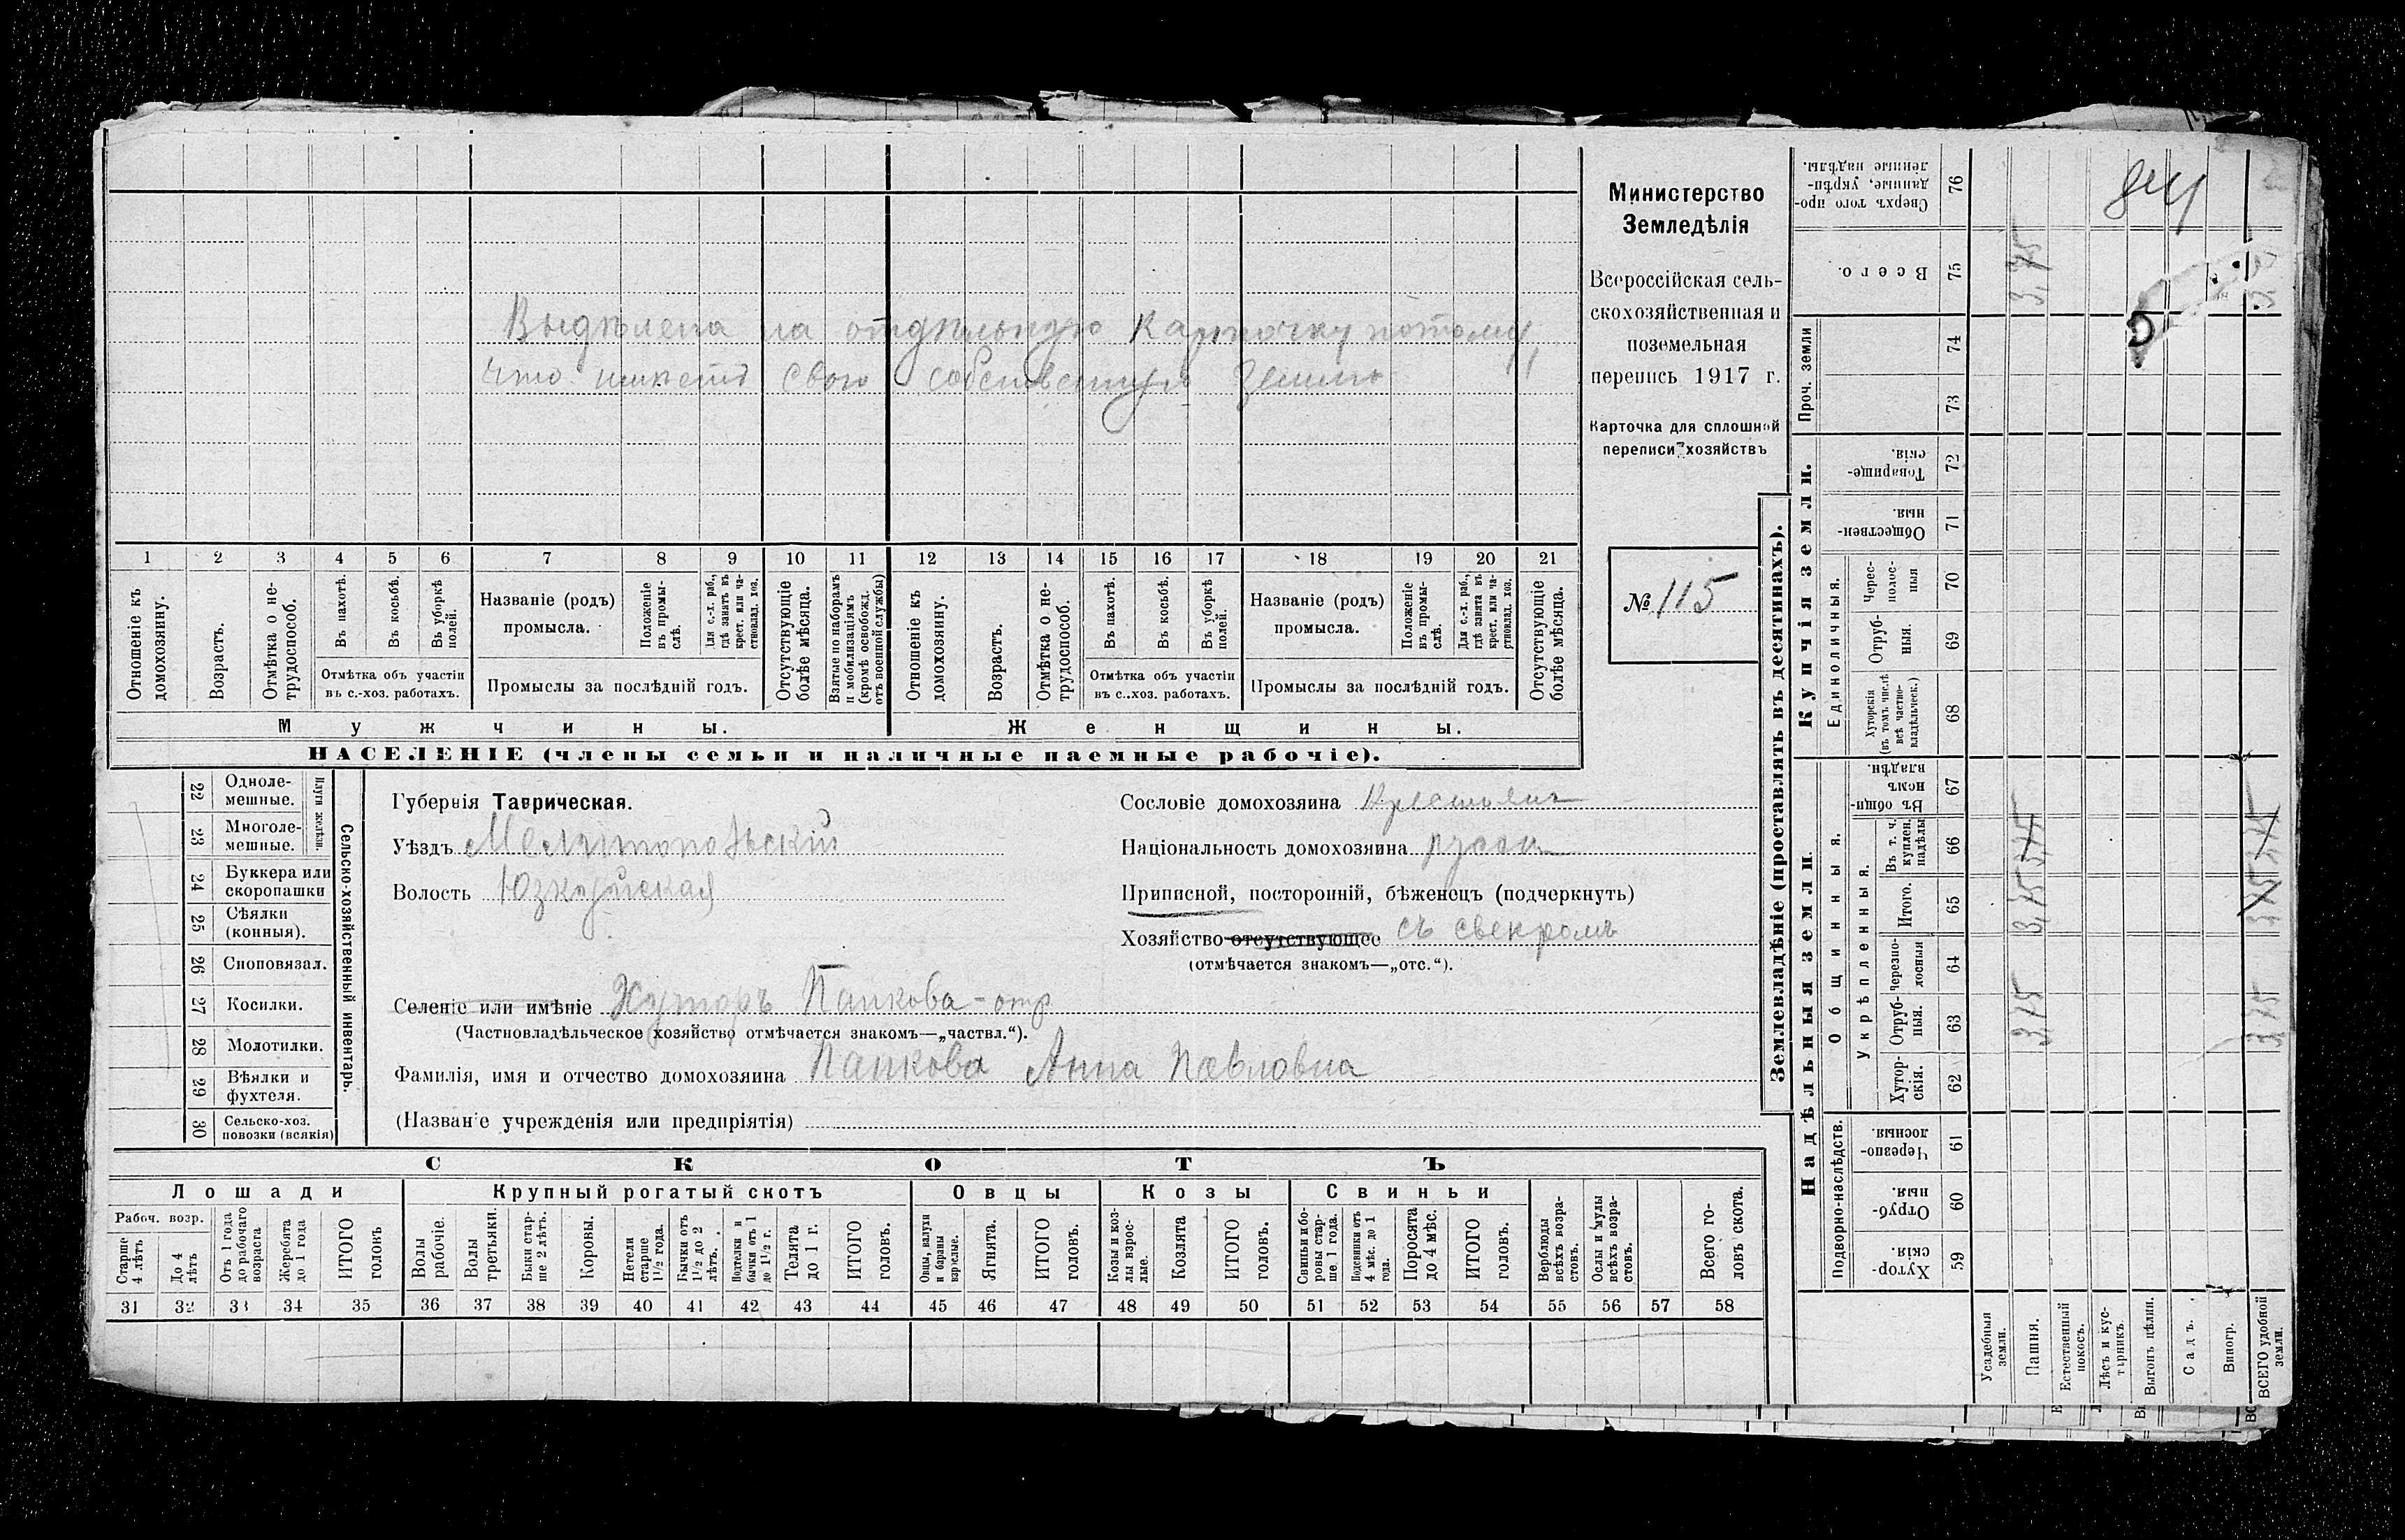 Министерство
Земледѣлія
Всероссійская сель-
скохозяйственная и
поземельная
перепись 1917 г.
Карточка для сплошной
переписи хозяйствъ
№ 115
Выдѣлена на отдѣльную карточку потому,
что имѣетъ свою собственную землю
1 2 3 4 5 6 7 8 9 10 11 12 13 14 15 16 17 18 19 20 21
Отношеніе къ домохозяину.
Возрастъ.
Отмѣтка о не-трудоспособ.
Въ пахотѣ.
Въ косьбѣ.
Въ уборкѣ полей.
Отмѣтка объ участіи
въ с.-хоз. работахъ.
Названіе (родъ)
промысла.
Положеніе въ промы-слѣ.
Для с.-х. раб., гдѣ занятъ въ крест. или ча-стновлад. хоз.
Промыслы за послѣдній годъ.
Отсутствующіе болѣе мѣсяца.
Взятые по наборамъ и мобилизаціямъ (кромѣ освобожд. отъ военной службы)
Отношеніе къ домохозяину.
Возрастъ.
Отмѣтка о не-трудоспособ.
Въ пахотѣ.
Въ косьбѣ.
Въ уборкѣ полей.
Отмѣтка объ участіи
въ с.-хоз. работахъ.
Названіе (родъ)
промысла.
Положеніе въ промы-слѣ.
Для с.-х. раб., гдѣ занята въ крест. или ча-стновлад. хоз.
Промыслы за послѣдній годъ.
Отсутствующіе болѣе мѣсяца.
Мужчины.
Женщины.
НАСЕЛЕНІЕ (члены семьи и наличные наемные рабочіе).
22 Одноле-мешные.
23 Многоле-мешные.
Плуги желѣзн.
24 Буккера или скоропашки
25 Сѣялки (конныя).
26 Сноповязал.
27 Косилки.
28 Молотилки.
29 Вѣялки и фухтеля.
30 Сельско-хоз. повозки (всякія)
Сельско-хозяйственный инвентарь.
Губернія Таврическая.
Уѣздъ Мелитопольскій
Волость Юзкуйская
Селеніе или имѣніе Хуторъ Папкова - отр
(Частновладѣльческое хозяйство отмѣчается знакомъ—„частвл.“).
Фамилія, имя и отчество домохозяина Папкова Анна Павловна
(Названіе учрежденія или предпріятія)
Сословіе домохозяина Крестьян
Національность домохозяина русск
Приписной, посторонній, бѣженецъ (подчеркнуть)
Хозяйство отсутствующее съ свекромъ
(отмѣчается знакомъ—„отс.“).
СКОТЪ
Лошади
Рабоч. возр.
Старше 4 лѣтъ
До 4 лѣтъ
Отъ 1 года до рабочаго возраста
Жеребята до 1 года
ИТОГО головъ
Крупный рогатый скотъ
Волы рабочіе.
Волы третьяки.
Быки стар-ше 2 лѣтъ.
Коровы.
Нетели старше 1½ года.
Бычки отъ 1½ до 2 лѣтъ.
Подтелки и бычки отъ 1 до 1½ г.
Телята до 1 г.
ИТОГО головъ.
Овцы
Овцы, валухи и бараны взрослые.
Ягнята.
ИТОГО головъ.
Козы
Козы и коз-лы взрос-лые.
Козлята
ИТОГО головъ.
Свиньи
Свиньи и бо-ровы стар-ше 1 года.
Подсвинки отъ 4 мѣс. до 1 года.
Поросята до 4 мѣс.
ИТОГО головъ.
Верблюды всѣхъ возра-стовъ.
Ослы и мулы всѣхъ возра-стовъ.
Всего го-ловъ скота.
31 32 33 34 35 36 37 38 39 40 41 42 43 44 45 46 47 48 49 50 51 52 53 54 55 56 57 58
Землевладѣніе (проставлять въ десятинахъ).
Надѣльныя земли.
Подворно-наслѣдств.
Хутор-скія. 59
Отруб-ныя. 60
Черезпо-лосныя. 61
Общинныя.
Укрѣпленныя.
Хутор-скія. 62
Отруб-ныя. 63
Черезпо-лосныя 64
Итого. 65
Въ т. ч. куплен. надѣлы 66
Въ общин-номъ владѣн. 67
Купчія земли.
Единоличныя.
Хуторскія (въ томъ числѣ всѣ частно-владѣльческ.) 68
Отруб-ныя. 69
Черес-полос-ныя 70
Обществен-ныя. 71
Товарище-скія. 72
Проч. земли
73
74
Всего. 75
Сверхъ того про-данные, укрѣп-ленные надѣлы. 76
Усадебныя земли.
Пашня.
Естественный покосъ.
Лѣсъ и кус-тарникъ.
Выгонъ цѣлин.
Садъ.
Виногр.
ВСЕГО удобной земли.
3,75
3,75
3,75
3,75
3,75